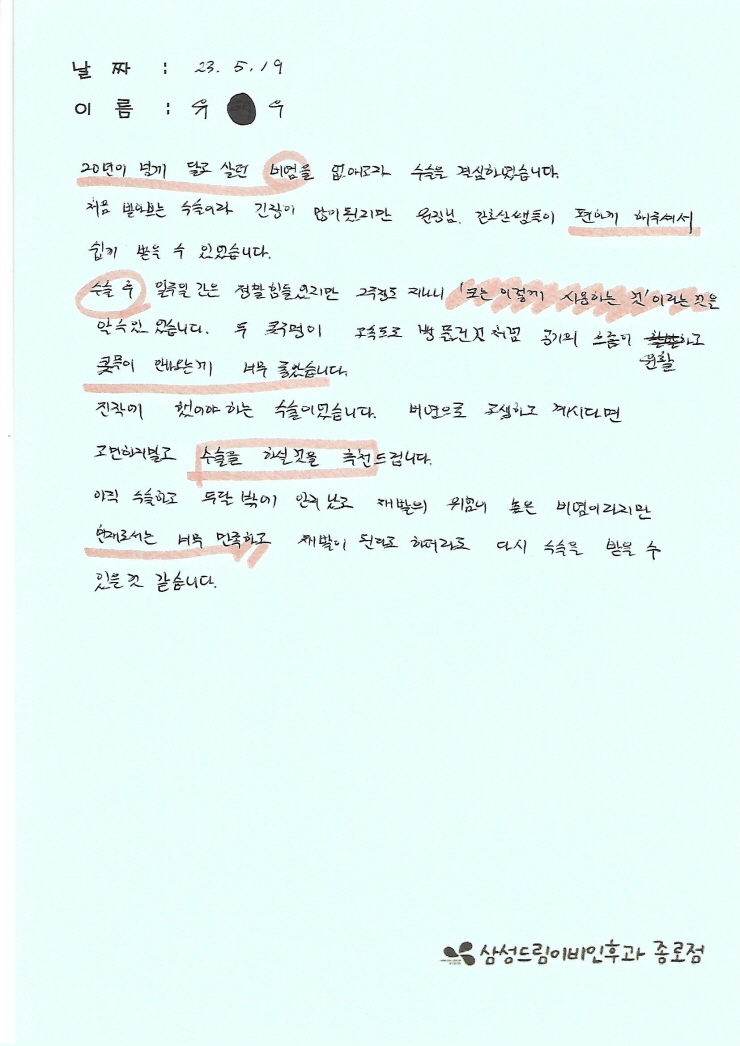 날 짜 : 23. 5. 19
이 름 : 유 우
20년이 넘게 달고 살던 비염을 없애고자 수술을 결심하였습니다.
처음 받아보는 수술이라 긴장이 많이 됐지만 원장님, 간호산쌤들이 편하게 해주셔서
쉽게 받을 수 있었습니다.
수술 후 일주일 간은 정말 힘들었지만 2주정도 지나니 '코는 이렇게 사용하는 것' 이라는 것을
알 수 있었습니다. 두 콧구멍이 고속도로 뻥 뚫린것처럼 공기의 흐름이 원활하고
콧물이 안나오는게 너무 좋았습니다.
진작에 했어야 하는 수술이였습니다. 비염으로 고생하고 계시다면
고민하지말고 수술을 하실 것을 추천드립니다.
아직 수술하고 두달 밖에 안지났고 재발의 위험이 높은 비염이라지만
현재로서는 너무 만족하고 재발이 된다고 하더라도 다시 수술을 받을 수
있을 것 같습니다.
삼성드림이비인후과 종로점